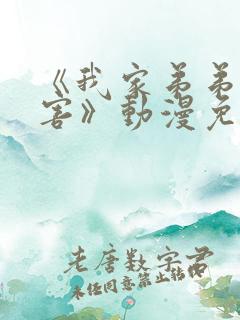 《我家弟弟
害》動漫免
老唐数字君
未经同意禁止转用